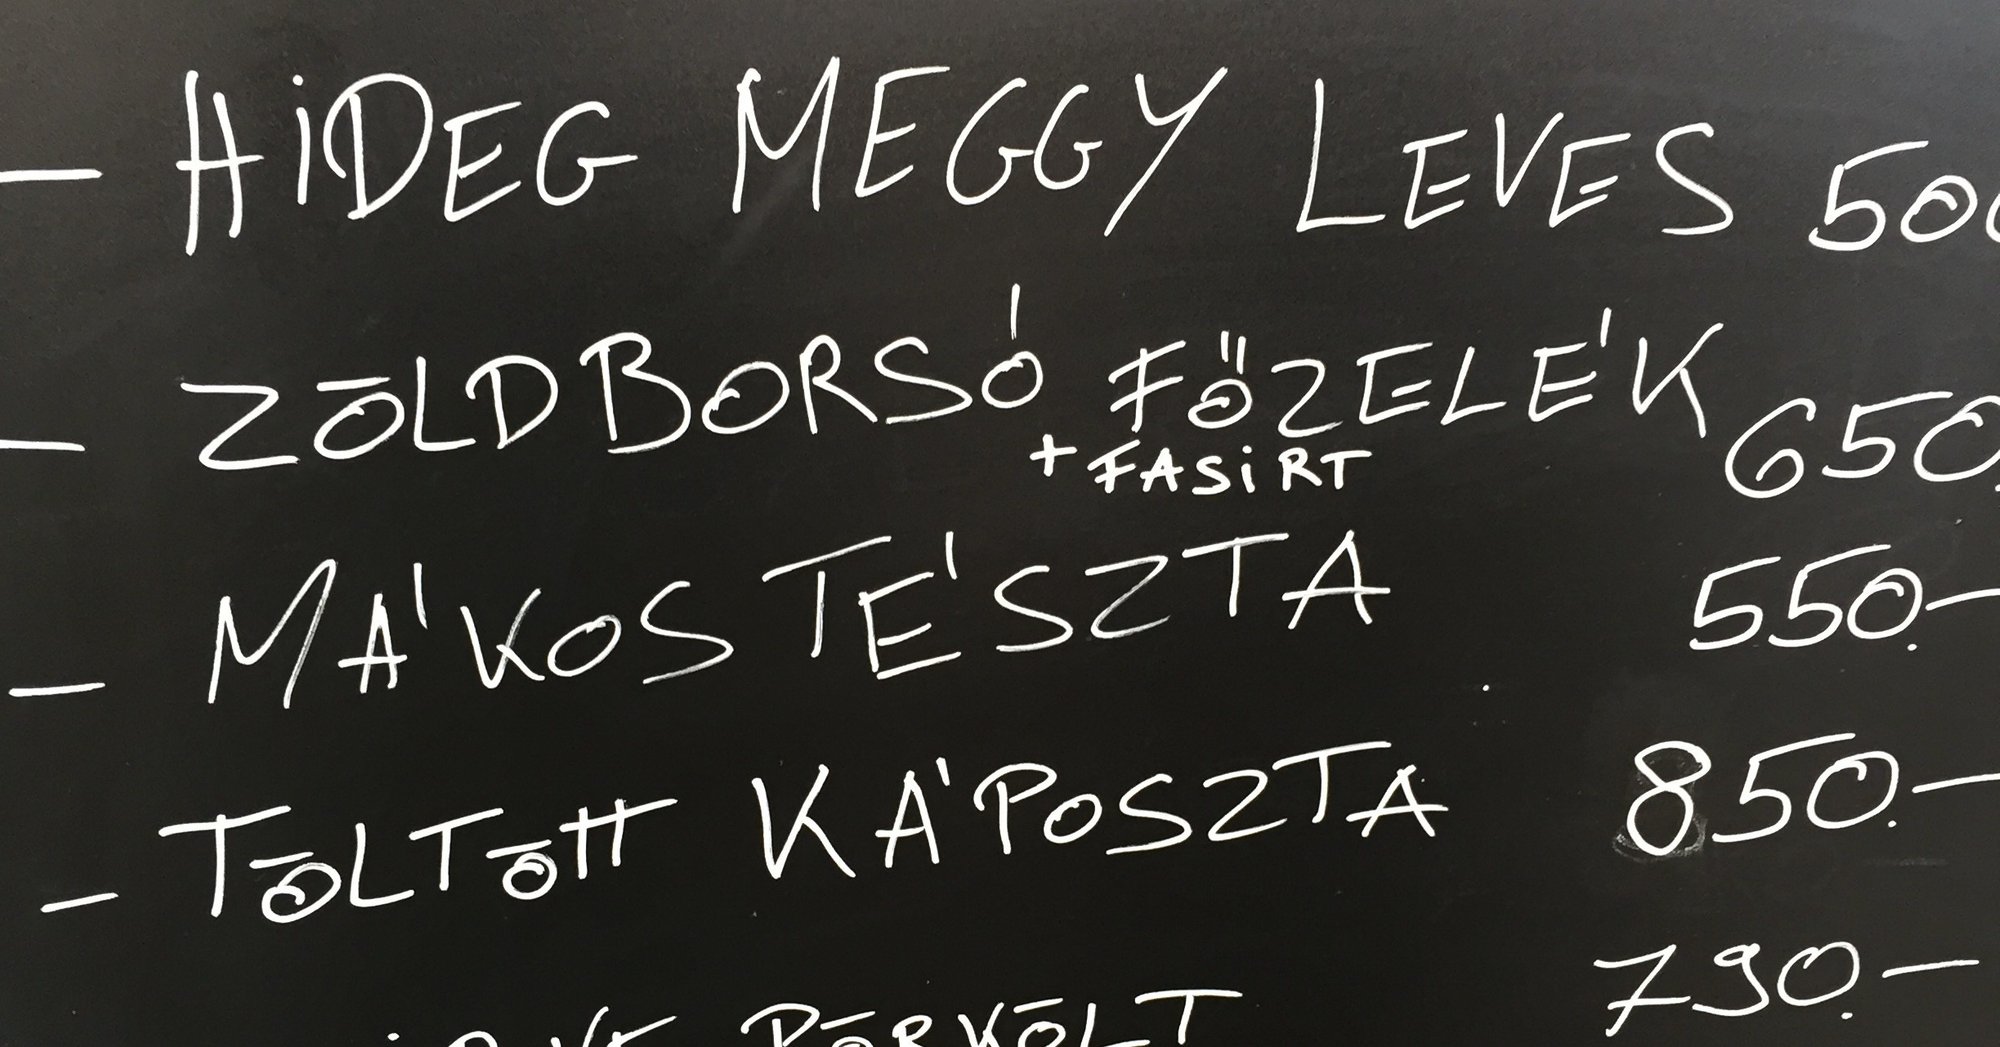 - HiDEG MEGGY LEVES 500
- ZÖLDBORSÓ FŐZELÉK 650.
+ FASiRT
- MÁKOS TÉSZTA 550.-
- TÖLTÖTT KÁPOSZTA 850.-
PÖRKÖLT 790.-